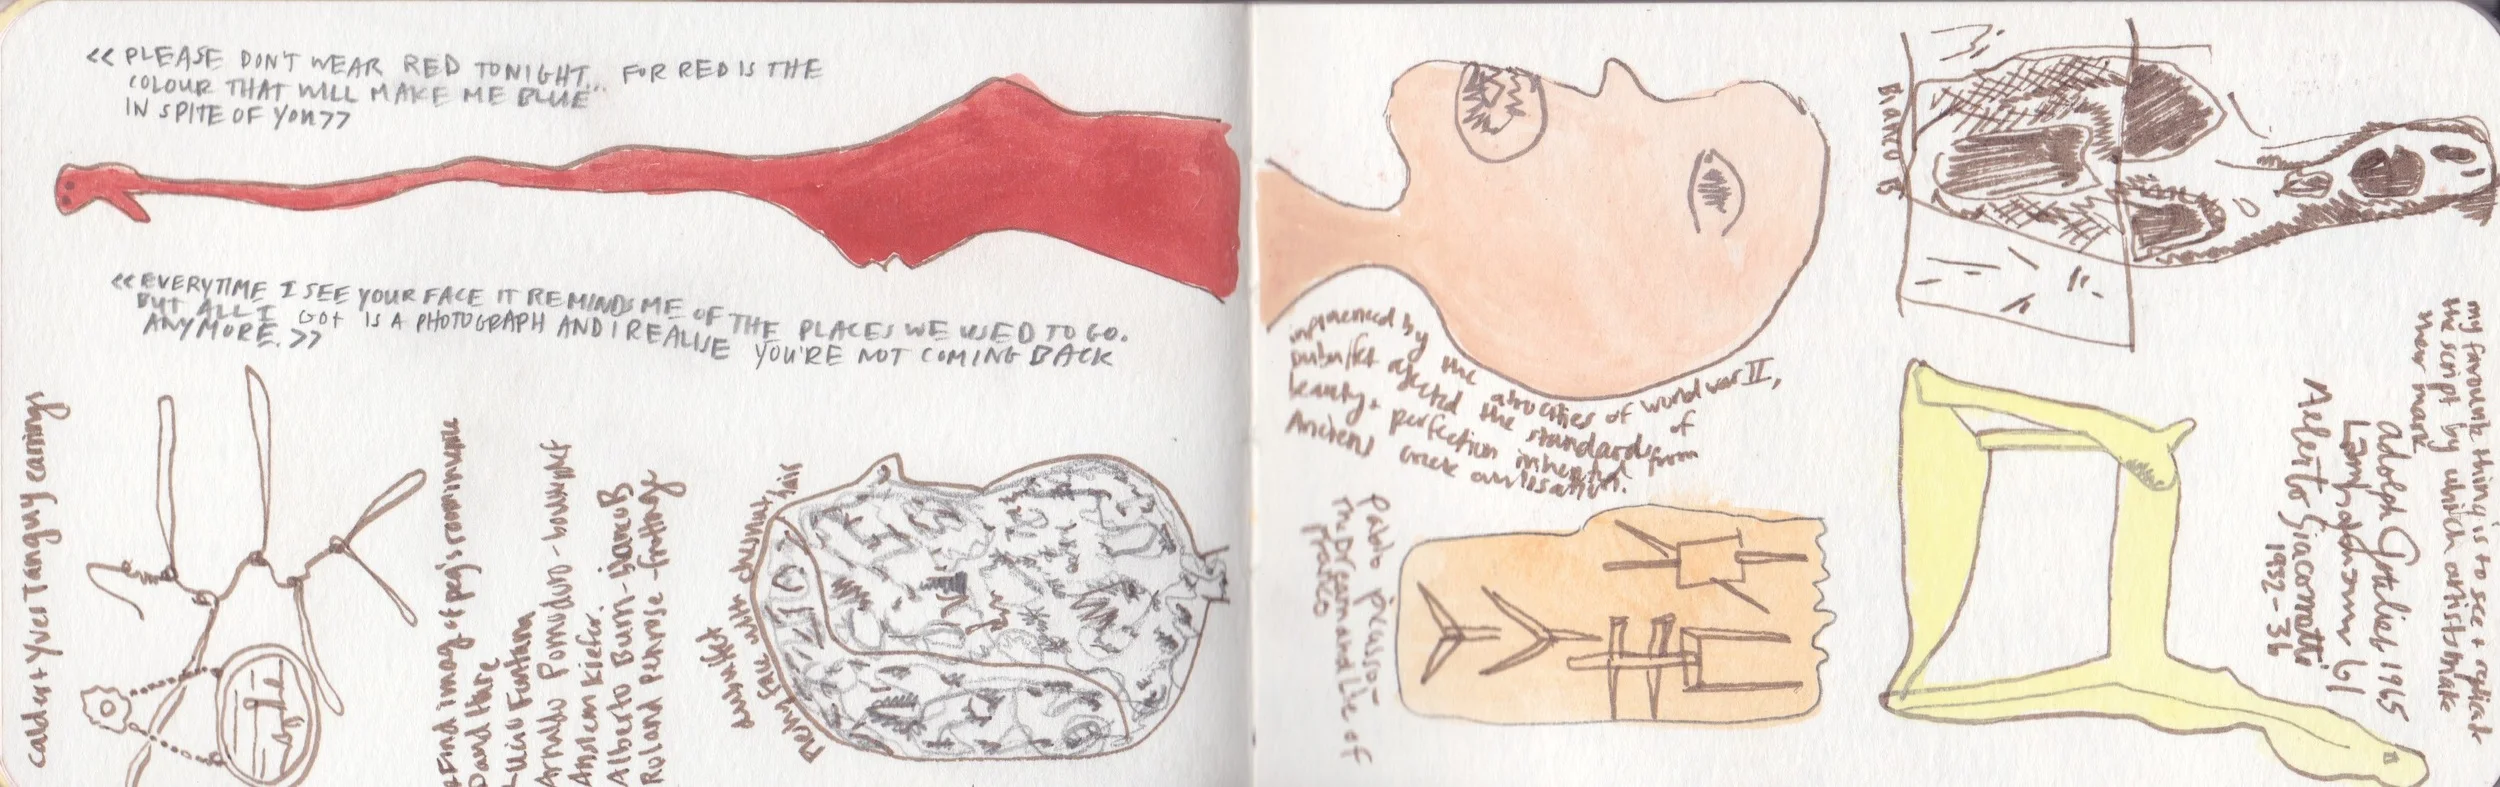 << PLEASE DON'T WEAR RED TONIGHT... FOR RED IS THE
COLOUR THAT WILL MAKE ME BLUE
IN SPITE OF YOU>>
<< EVERYTIME I SEE YOUR FACE IT REMINDS ME OF THE PLACES WE USED TO GO.
BUT ALL I GOT IS A PHOTOGRAPH AND I REALISE YOU'RE NOT COMING BACK
ANYMORE. >>
calder + Yves Tanguy earrings
Find image of peg's room in
David Hare
Fontana
Arnaldo Pomodoro -
Anselm Kiefer.
Alberto Burri - bianco B
Roland Penrose - frottage
fleshy face with chestnut hair
influenced by the atrocities of world war II,
Dubuffet rejected the standards of
beauty + perfection inherited from
Ancient Greek civilisation.
Pablo Picasso -
The Dream and Lie of
Franco
BIANCO B
my favourite thing is to see + replicate
the script by which artists make
their mark
Adolph Gottlieb 1965
61
Alberto Giacometti
1932-36